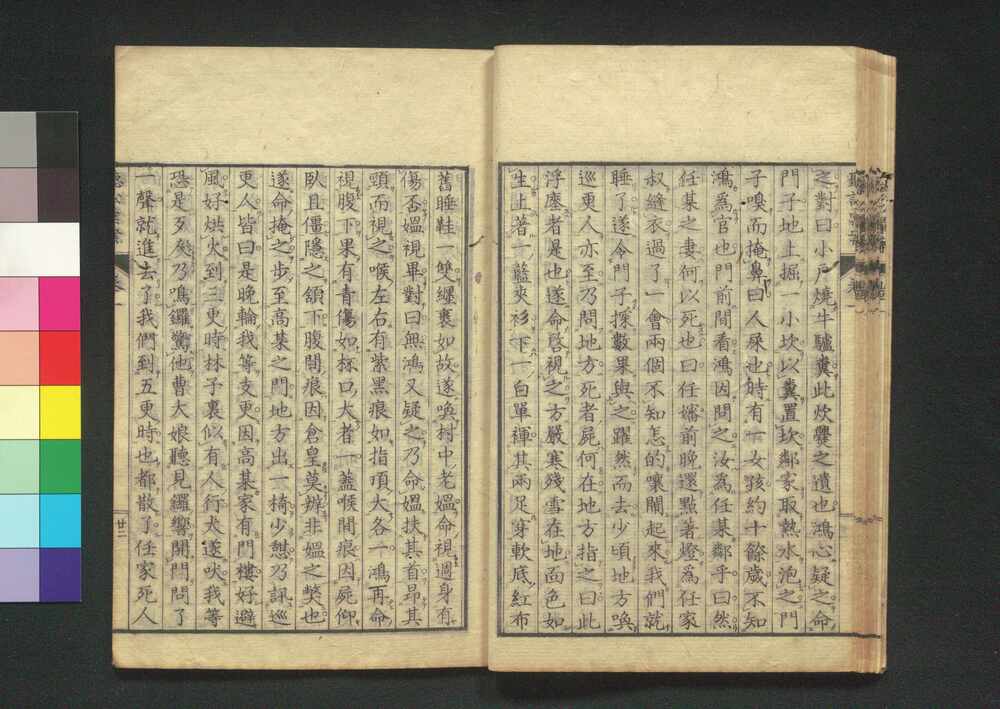 之對曰小戶燒牛驢糞此炊爨之遺也鴻心疑之命
門子地上掘一小坎以糞置坎鄰家取熱水泡之門
子嗅而掩鼻曰人屎也時有一女孩約十餘歲不知
鴻爲官也門前閒看鴻因問之汝爲任某鄰乎曰然
任某之妻何以死也曰任嬸前晚還點著燈爲任家
叔縫衣過了一會兩個不知怎的嚷鬧起來我們就
睡了遂令門子採數果與之躍然而去少頃地方喚
巡更人亦至乃問地方死者屍何在地方指之曰此
浮塵者是也遂命啓視之方嚴寒殘雪在地面色如
生上著一藍夾衫下一白單褌其兩足穿軟底紅布
舊睡鞋一雙纏裹如故遂喚村中老媼命視週身有
傷否媼視畢對曰無鴻又疑之乃命媼扶其首昂其
頸而視之喉左右有紫黑痕如指項大各一鴻再命
視腹下果有青傷如杯口大者一蓋喉間痕因屍仰
臥且僵隱之頷下腹間痕因倉皇莫辦非媼之弊也
遂命掩之步至高某之門地方出一椅少憇乃訊巡
更人皆曰是晚輪我等支更因高某家有門樓好避
風好烘火到三更時林子裏似有人行犬遂吠我等
恐是歹人乃鳴鑼驚他曹大娘聽見鑼響開門問了
一聲就進去了我們到五更時也都散了任家死人
廿二